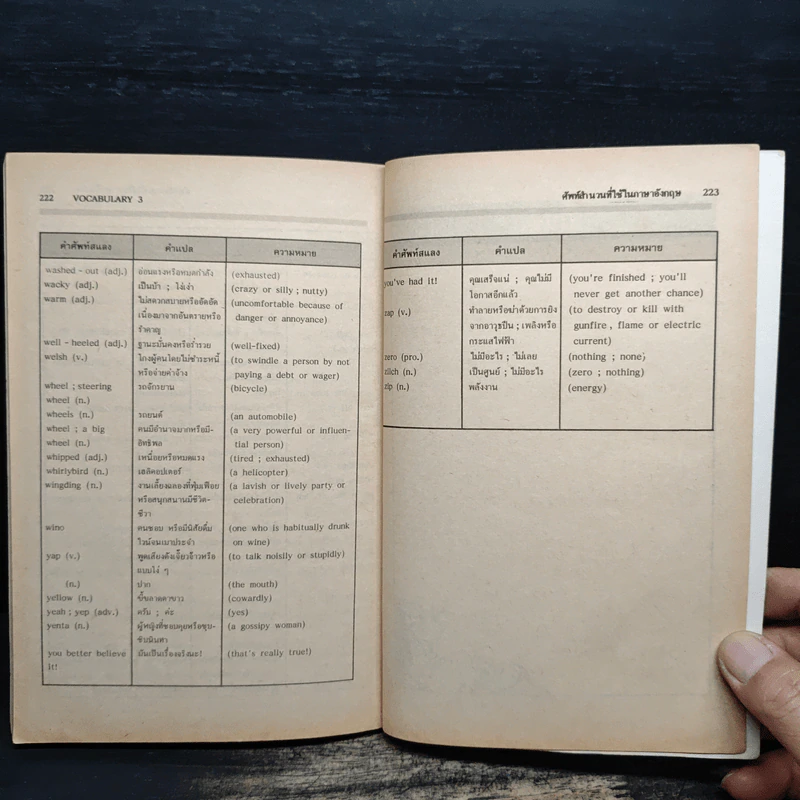 222 VOCABULARY 3
คำศัพท์สแลง คำแปล ความหมาย
washed - out (adj.) อ่อนแรงหรือหมดกำลัง (exhausted)
wacky (adj.) เป็นบ้า ; โง่เง่า (crazy or silly ; nutty)
warm (adj.) ไม่สะดวกสบายหรืออึดอัด (uncomfortable because of
เนื่องมาจากอันตรายหรือ danger or annoyance)
รำคาญ
well - heeled (adj.) ฐานะมั่นคงหรือร่ำรวย (well-fixed)
welsh (v.) โกงผู้คนโดยไม่ชำระหนี้ (to swindle a person by not
หรือจ่ายค่าจ้าง paying a debt or wager)
wheel ; steering รถจักรยาน (bicycle)
wheel (n.)
wheels (n.) รถยนต์ (an automobile)
wheel ; a big คนมีอำนาจมากหรือมี- (a very powerful or influen-
wheel (n.) อิทธิพล tial person)
whipped (adj.) เหนื่อยหรือหมดแรง (tired ; exhausted)
whirlybird (n.) เฮลิคอปเตอร์ (a helicopter)
wingding (n.) งานเลี้ยงฉลองที่ฟุ่มเฟือย (a lavish or lively party or
หรือสนุกสนานมีชีวิต- celebration)
ชีวา
wino คนชอบ หรือมีนิสัยดื่ม (one who is habitually drunk
ไวน์จนเมาประจำ on wine)
yap (v.) พูดเสียงดังเจี๊ยวจ๊าวหรือ (to talk noisily or stupidly)
แบบโง่ ๆ
(n.) ปาก (the mouth)
yellow (n.) ขี้ขลาดตาขาว (cowardly)
yeah ; yep (adv.) ครับ ; ค่ะ (yes)
yenta (n.) ผู้หญิงที่ชอบคุยหรือซุบ- (a gossipy woman)
ซิบนินทา
you better believe มันเป็นเรื่องจริงนะ! (that's really true!)
it!
ศัพท์สำนวนที่ใช้ในภาษาอังกฤษ 223
คำศัพท์สแลง คำแปล ความหมาย
you've had it! คุณเสร็จแน่ ; คุณไม่มี (you're finished ; you'll
โอกาสอีกแล้ว never get another chance)
zap (v.) ทำลายหรือฆ่าด้วยการยิง (to destroy or kill with
จากอาวุธปืน ; เพลิงหรือ gunfire, flame or electric
กระแสไฟฟ้า current)
zero (pro.) ไม่มีอะไร ; ไม่เลย (nothing ; none)
zilch (n.) เป็นศูนย์ ; ไม่มีอะไร (zero ; nothing)
zip (n.) พลังงาน (energy)